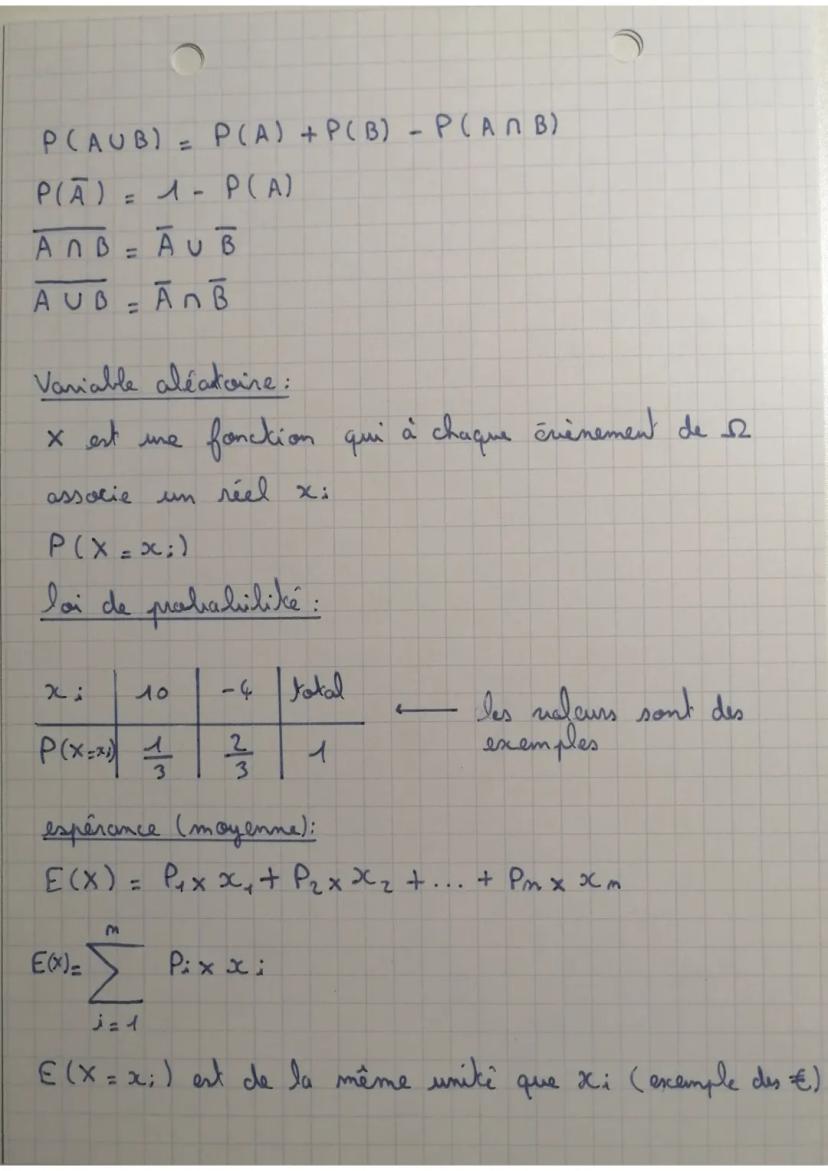 P(A∪B) = P(A) + P(B) - P(A∩B)
P(Ā) = 1 - P(A)
A̅ ̅∩̅ ̅B̅ = Ā ∪ B̅
A̅ ̅∪̅ ̅B̅ = Ā ∩ B̅
Variable aléatoire :
X est une fonction qui à chaque évènement de Ω
associe un réel xi
P(X = xi)
loi de probabilité :
xi | 10 | -4 | total
P(X=xi) | 1/3 | 2/3 | 1
← les valeurs sont des
exemples
espérance (moyenne) :
E(X) = P1 × x1 + P2 × x2 + ... + Pn × xn
E(X) = ∑ⁿᵢ₌₁ Pi × xi
E(X = xi) est de la même unité que xi (exemple des €)